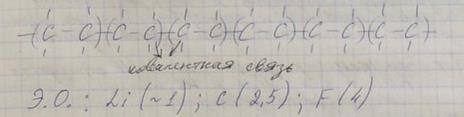 -(C-C)(C-C)(C-C)(C-C)(C-C)(C-C)-
ковалентная связь
Э.О.: Li (~1); C (2,5); F (4)